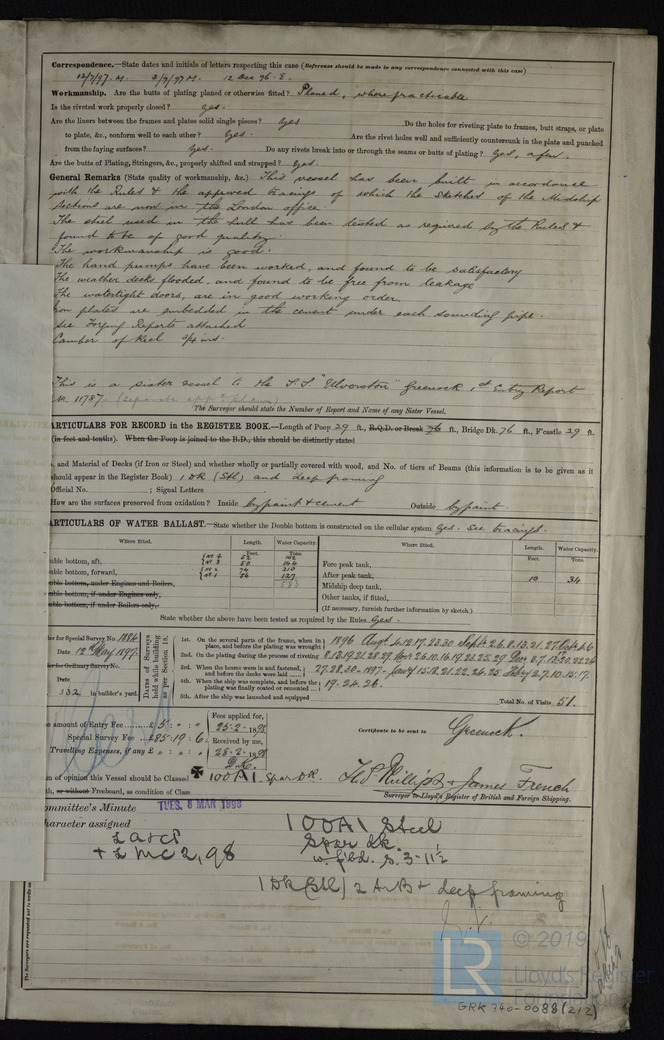 Correspondence.—State dates and initials of letters respecting this case (Reference should be made to any correspondence connected with this case)
12/7/97. M. 2/9/97 M. 12 Dec 96. E.
Workmanship. Are the butts of plating planed or otherwise fitted? Planed, where practicable
Is the riveted work properly closed? Yes.
Are the liners between the frames and plates solid single pieces? Yes Do the holes for riveting plate to frames, butt straps, or plate
to plate, &c., conform well to each other? Yes. Are the rivet holes well and sufficiently countersunk in the plate and punched
from the faying surfaces? Yes. Do any rivets break into or through the seams or butts of plating? Yes, a few.
Are the butts of Plating, Stringers, &c., properly shifted and strapped? Yes.
General Remarks (State quality of workmanship, &c.) This vessel has been built in accordance
with the Rules & the approved tracings of which the sketches of the Midship
sections are now in the London office.
The steel used in the hull has been tested as required by the Rules &
found to be of good quality.
The workmanship is good.
The hand pumps have been worked, and found to be satisfactory
The weather decks flooded, and found to be free from leakage
The watertight doors, are in good working order
Iron plates are embedded in the cement under each sounding pipe.
See Forging Reports attached
Camber of Keel ins.
This is a sister vessel to the S.S. "Ulverston" Greenock 1st Entry Report
No. 11787.
The Surveyor should state the Number of Report and Name of any Sister Vessel.
ARTICULARS FOR RECORD in the REGISTER BOOK.—Length of Poop 29 ft., R.Q.D. or Break 76 ft., Bridge Dk. 76 ft., F'castle 29 ft.
(in feet and tenths). When the Poop is joined to the B.D., this should be distinctly stated
, and Material of Decks (if Iron or Steel) and whether wholly or partially covered with wood, and No. of tiers of Beams (this information is to be given as it
should appear in the Register Book) 1 Dk (Stl) and deep framing
Official No. ; Signal Letters
How are the surfaces preserved from oxidation? Inside by paint & cement Outside by paint.
ARTICULARS OF WATER BALLAST.—State whether the Double bottom is constructed on the cellular system Yes. See tracings.
Where fitted. Length. Water Capacity. Where fitted. Length. Water Capacity.
Feet. Tons Feet. Tons
uble bottom, aft, No 4 52 102 Fore peak tank,
No 3 50 144 After peak tank, 10 34
uble bottom, forward, No 2 74 210 Midship deep tank,
uble bottom, under Engines and Boilers, No 1 56 127 Other tanks, if fitted,
uble bottom, if under Engines only, (If necessary, furnish further information by sketch.)
uble bottom, if under Boilers only,
State whether the above have been tested as required by the Rules Yes.
er for Special Survey No. 1884
Date 12th May 1897.
er for Ordinary Survey No.
Date
332 in builder's yard.
Dates of Surveys held while building as per Section 18.
1st. On the several parts of the frame, when in place, and before the plating was wrought 1896 Augt 4.12.17.23.30
2nd. On the plating during the process of riveting
3rd. When the beams were in and fastened, and before the decks were laid
4th. When the ship was complete, and before the plating was finally coated or cemented 19. 24. 26.
5th. After the ship was launched and equipped
Total No. of Visits 51.
e amount of Entry Fee £ 5 : " : " Fees applied for,
Special Survey Fee £ 85 : 19 : 6 25.2. 1898
Travelling Expenses, if any £ " : " : " Received by me,
28.2. 1898
Certificate to be sent to Greenock.
m of opinion this Vessel should be Classed ✠ 100A1. Spar Dk.
th, or without Freeboard, as condition of Class
& James French
Surveyor to Lloyd's Register of British and Foreign Shipping.
ommittee's Minute TUES. 8 MAR 1898
haracter assigned 100A1 Steel
Spar dk.
+ LMC 2,98
1 Dk (Stl) & deep framing
The Surveyors are requested not to write
LR
© 2019
Lloyd's Register
Foundation
GRK 740-0088 (2/2)